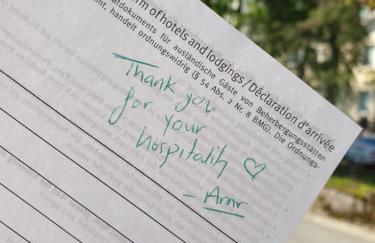 rm of hotels and lodgings / Déclaration d'arrivée
aldokuments für ausländische Gäste von Beherbergungsstätten
mt, handelt ordnungswidrig (§ 54 Abs. 2 Nr. 8 BMG). Die Ordnungs-
Thank you
for your
hospitality ♡
- Amr